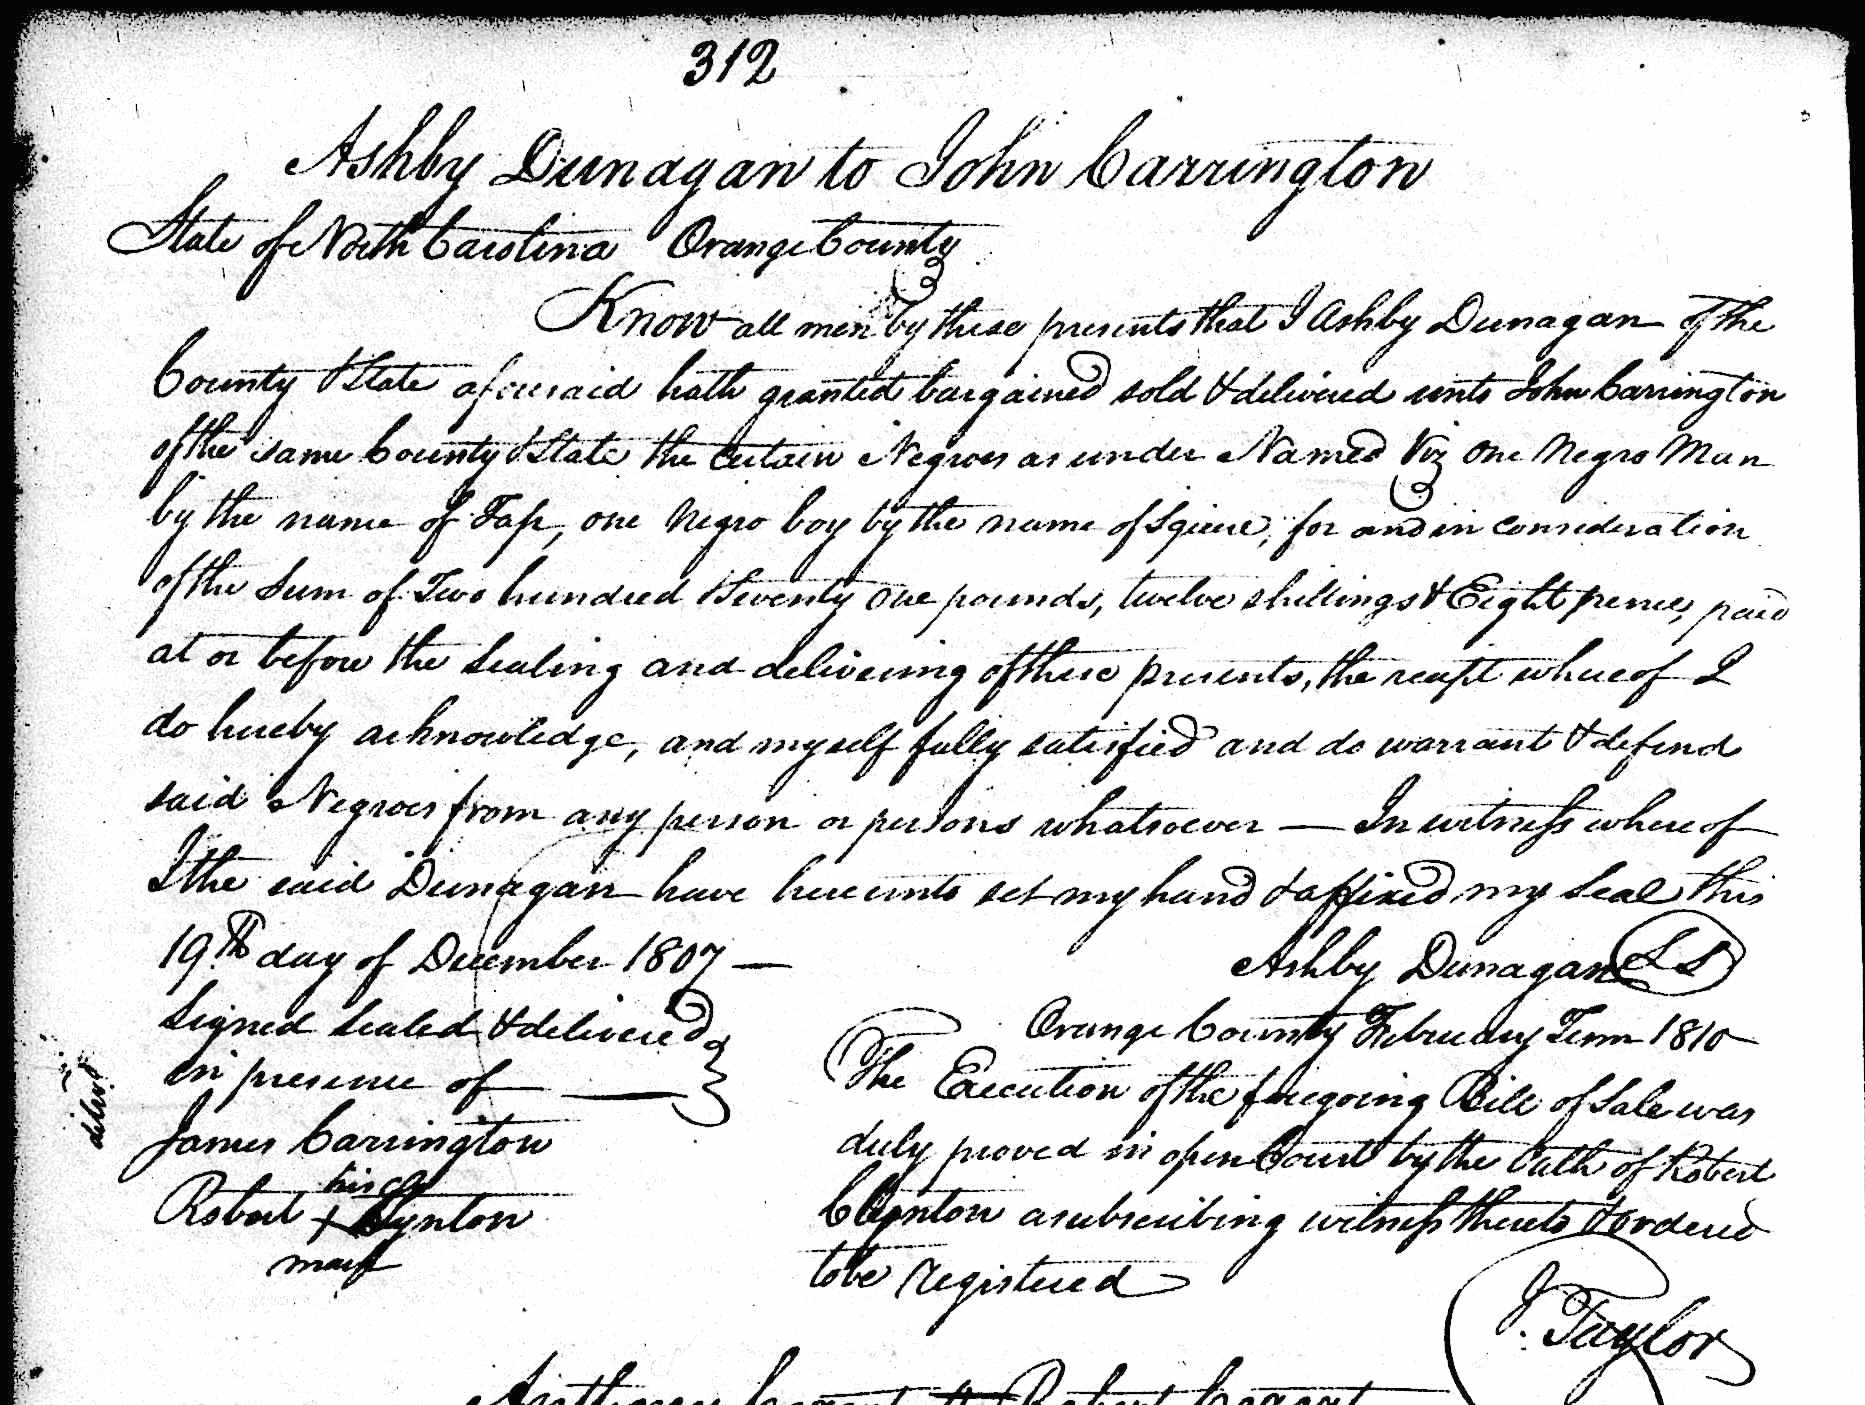 312
Ashby Dunagan to John Carrington
State of North Carolina Orange County
Know all men by these presents that I Ashby Dunagan of the
County & State aforesaid hath granted bargained sold & delivered unto John Carrington
of the same County & State the certain Negroes as under Named Viz One Negro Man
by the name of Tap, one Negro boy by the name of Squire, for and in consideration
of the Sum of Two hundred & Seventy one pounds, twelve shillings & Eight pence, paid
at or before the Sealing and delivering of these presents, the receipt whereof I
do hereby acknowledge, and myself fully satisfied and do warrant & defend
said Negroes from any person or persons whatsoever — In witness whereof
I the said Dunagan have hereunto set my hand & affixed my Seal this
19th day of December 1807 —
Ashby Dunagan LS
Signed Sealed & delivered
in presence of
James Carrington
his
Robert + Clynton
mark
delivd
Orange County February Term 1810
The Execution of the foregoing Bill of Sale was
duly proved in open Court by the Oath of Robert
Clynton a subscribing witness thereto & ordered
to be Registered
J. Taylor